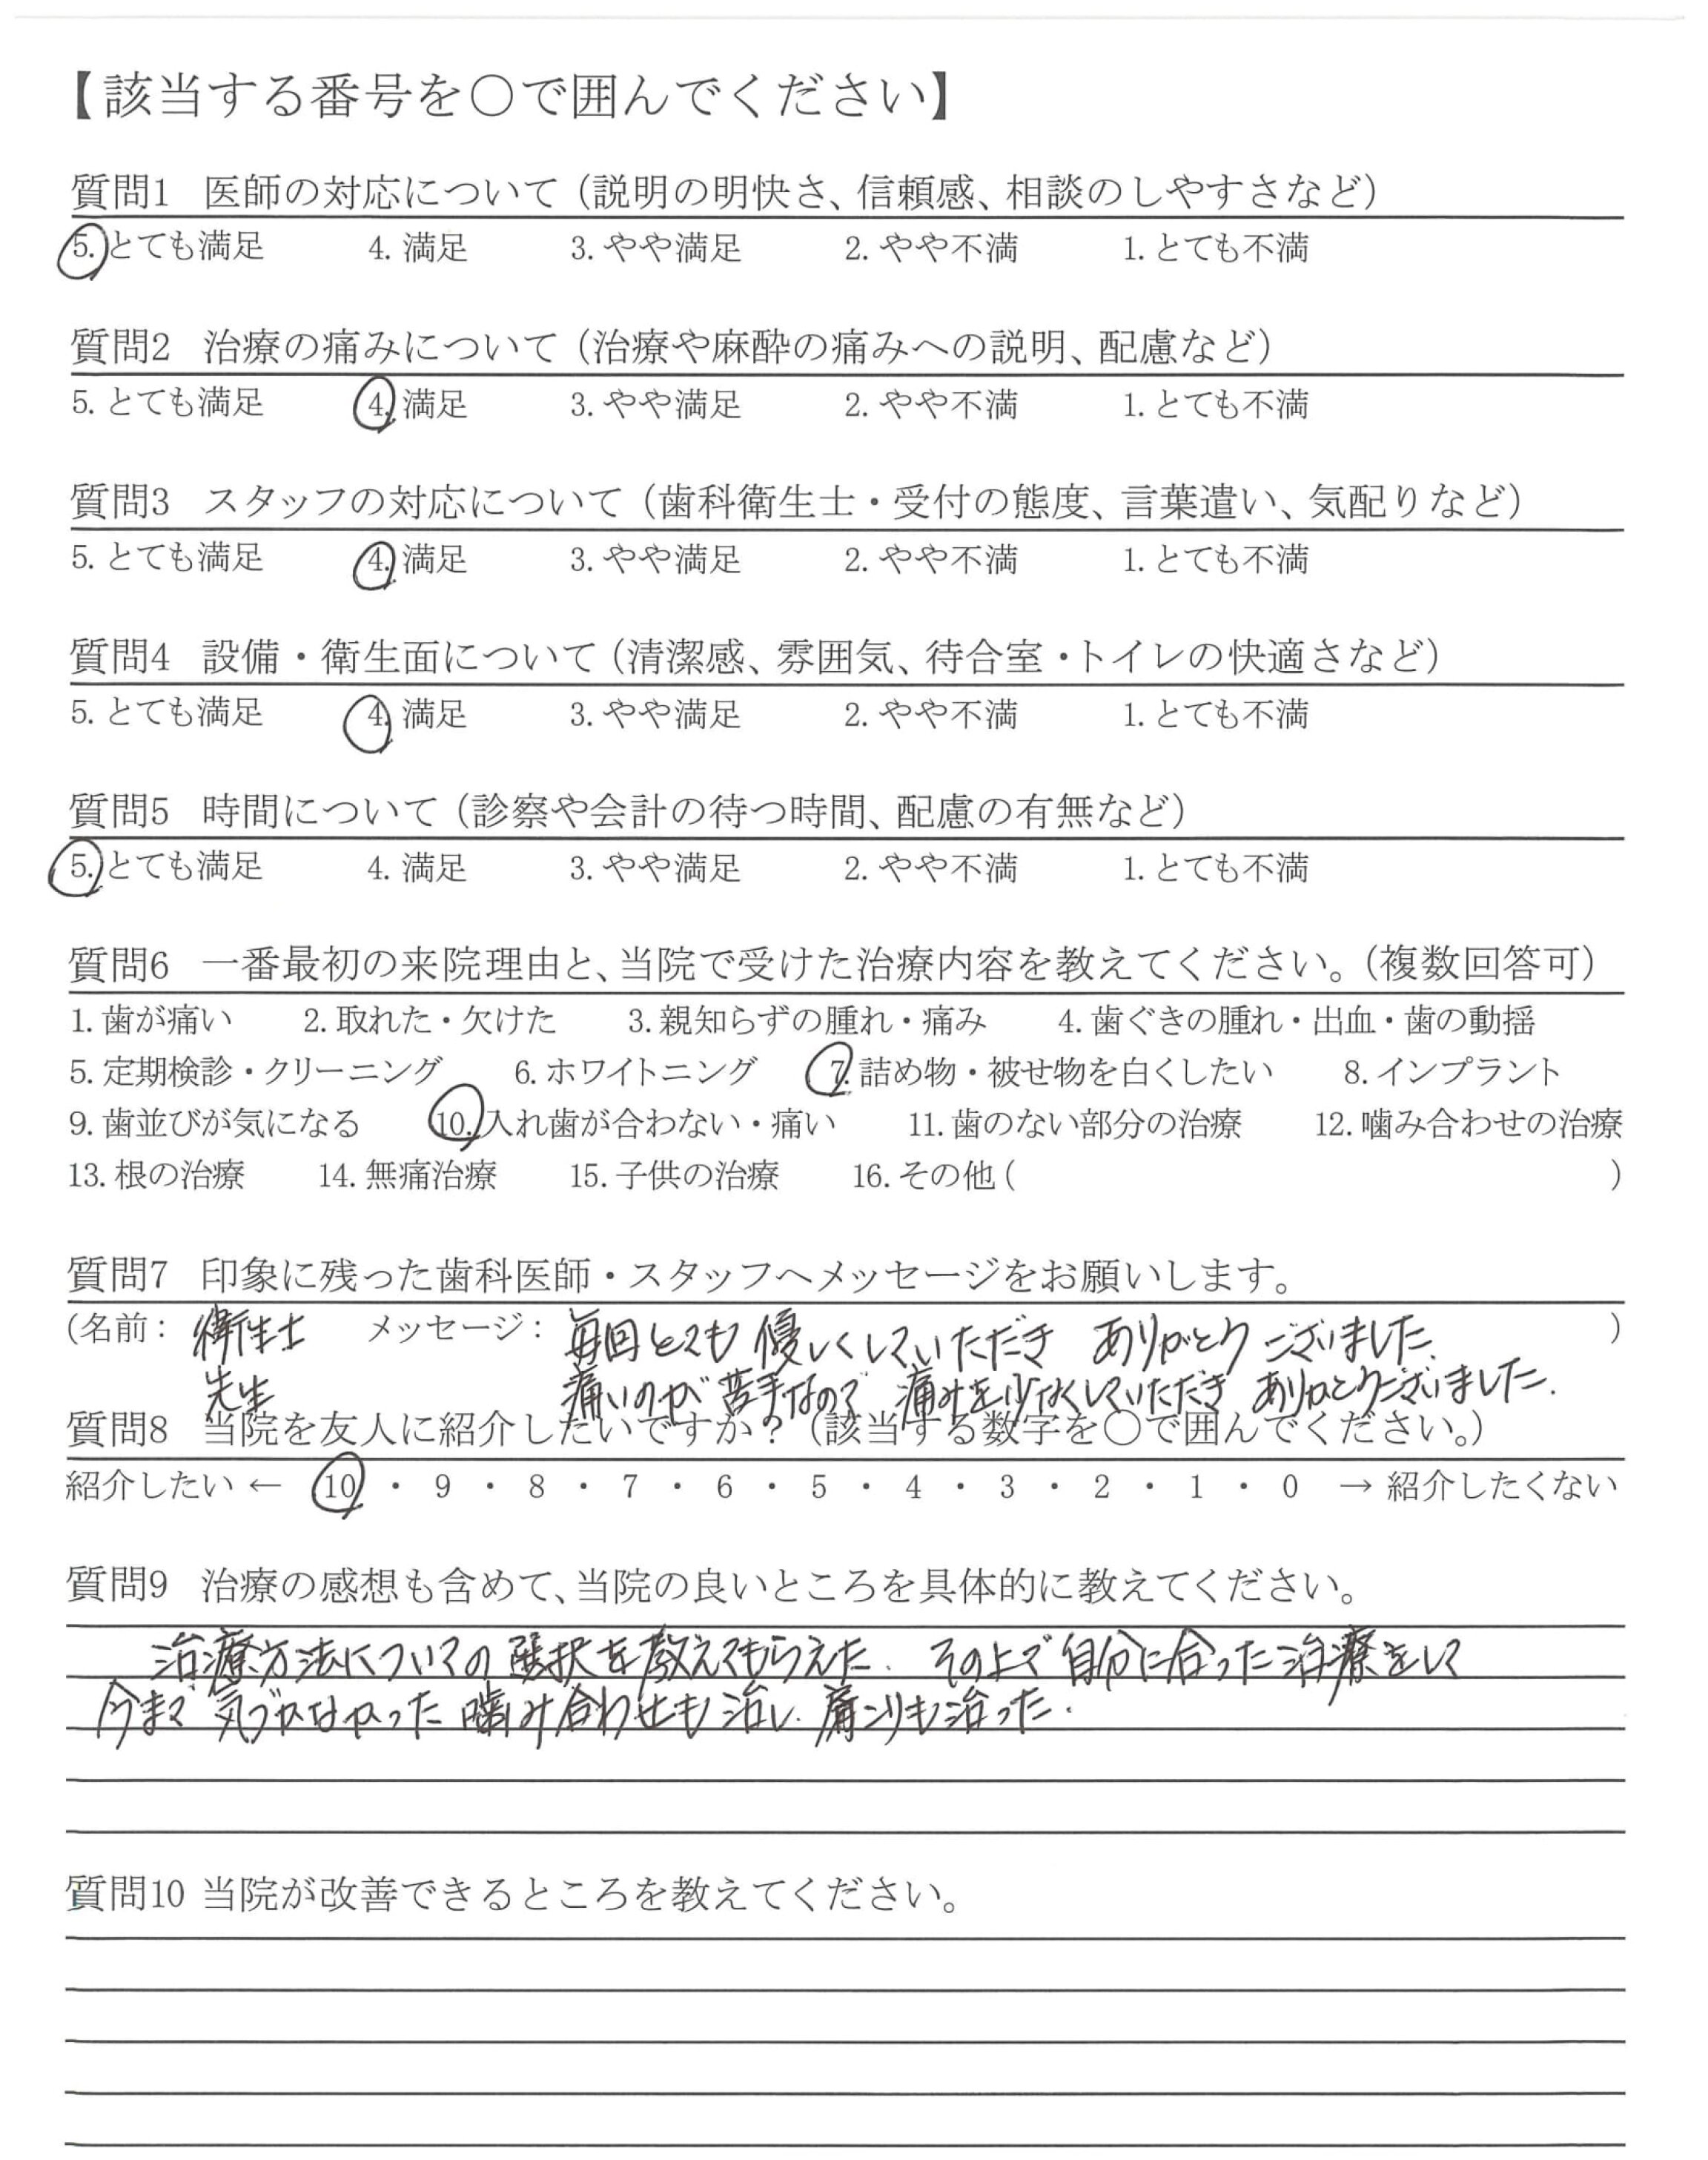 【該当する番号を○で囲んでください】
質問1 医師の対応について（説明の明快さ、信頼感、相談のしやすさなど）
5. とても満足 4. 満足 3. やや満足 2. やや不満 1. とても不満
質問2 治療の痛みについて（治療や麻酔の痛みへの説明、配慮など）
5. とても満足 4. 満足 3. やや満足 2. やや不満 1. とても不満
質問3 スタッフの対応について（歯科衛生士・受付の態度、言葉遣い、気配りなど）
5. とても満足 4. 満足 3. やや満足 2. やや不満 1. とても不満
質問4 設備・衛生面について（清潔感、雰囲気、待合室・トイレの快適さなど）
5. とても満足 4. 満足 3. やや満足 2. やや不満 1. とても不満
質問5 時間について（診察や会計の待つ時間、配慮の有無など）
5. とても満足 4. 満足 3. やや満足 2. やや不満 1. とても不満
質問6 一番最初の来院理由と、当院で受けた治療内容を教えてください。（複数回答可）
1. 歯が痛い 2. 取れた・欠けた 3. 親知らずの腫れ・痛み 4. 歯ぐきの腫れ・出血・歯の動揺
5. 定期検診・クリーニング 6. ホワイトニング 7. 詰め物・被せ物を白くしたい 8. インプラント
9. 歯並びが気になる 10. 入れ歯が合わない・痛い 11. 歯のない部分の治療 12. 噛み合わせの治療
13. 根の治療 14. 無痛治療 15. 子供の治療 16. その他（ ）
質問7 印象に残った歯科医師・スタッフへメッセージをお願いします。
（名前： 衛生士 メッセージ： 毎回とても優しくしていただき ありがとうございました. ）
先生 痛いのが苦手なので 痛みを少なくしていただき ありがとうございました.
質問8 当院を友人に紹介したいですか？（該当する数字を○で囲んでください。）
紹介したい ← 10 ・ 9 ・ 8 ・ 7 ・ 6 ・ 5 ・ 4 ・ 3 ・ 2 ・ 1 ・ 0 → 紹介したくない
質問9 治療の感想も含めて、当院の良いところを具体的に教えてください。
治療方法についての選択を教えてもらえた. その上で自分に合った治療をして
今まで気づかなかった噛み合わせも治し. 肩コリも治った.
質問10 当院が改善できるところを教えてください。